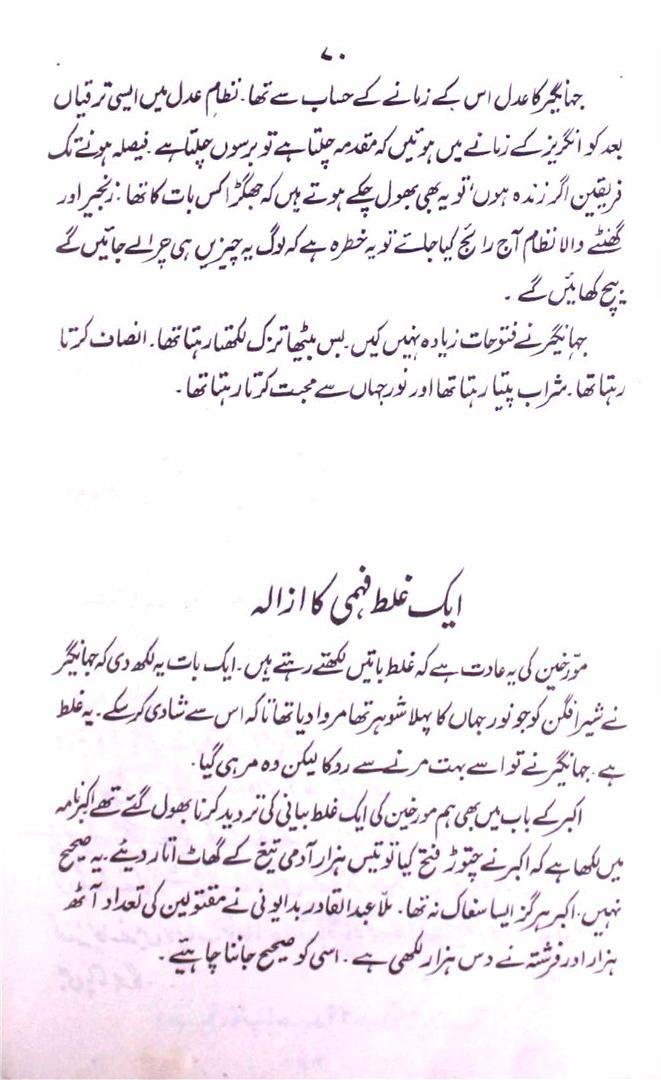 ۷۰
جہانگیر کا عدل اس کے زمانے کے حساب سے تھا۔ نظامِ عدل میں ایسی ترقیاں
بعد کو انگریز کے زمانے میں ہوئیں کہ مقدمہ چلتا ہے تو برسوں چلتا ہے۔ فیصلہ ہونے تک
فریقین اگر زندہ ہوں، تو یہ بھی بھول چکے ہوتے ہیں کہ جھگڑا کس بات کا تھا۔ زنجیر اور
گھنٹے والا نظام آج رائج کیا جائے تو یہ خطرہ ہے کہ لوگ یہ چیزیں ہی چرا لے جائیں گے
بیچ کھائیں گے۔
جہانگیر نے فتوحات زیادہ نہیں کیں۔ بس بیٹھا تزک لکھتا رہتا تھا۔ انصاف کرتا
رہتا تھا۔ شراب پیتا رہتا تھا اور نورجہاں سے محبت کرتا رہتا تھا۔
ایک غلط فہمی کا ازالہ
مورّخین کی یہ عادت ہے کہ غلط باتیں لکھتے رہتے ہیں۔ ایک بات یہ لکھ دی کہ جہانگیر
نے شیر افگن کو جو نور جہاں کا پہلا شوہر تھا مروا دیا تھا تاکہ اس سے شادی کر سکے۔ یہ غلط
ہے۔ جہانگیر نے تو اسے بہت مرنے سے روکا لیکن وہ مر ہی گیا۔
اکبر کے باب میں بھی ہم مورخین کی ایک غلط بیانی کی تردید کرنا بھول گئے تھے اکبرنامہ
میں لکھا ہے کہ اکبر نے چتوڑ فتح کیا تو تیس ہزار آدمی تیغ کے گھاٹ اتار دیئے۔ یہ صحیح
نہیں۔ اکبر ہرگز ایسا سفاک نہ تھا۔ ملّا عبدالقادر بدایونی نے مقتولین کی تعداد آٹھ
ہزار اور فرشتہ نے دس ہزار لکھی ہے۔ اسی کو صحیح جاننا چاہیے۔